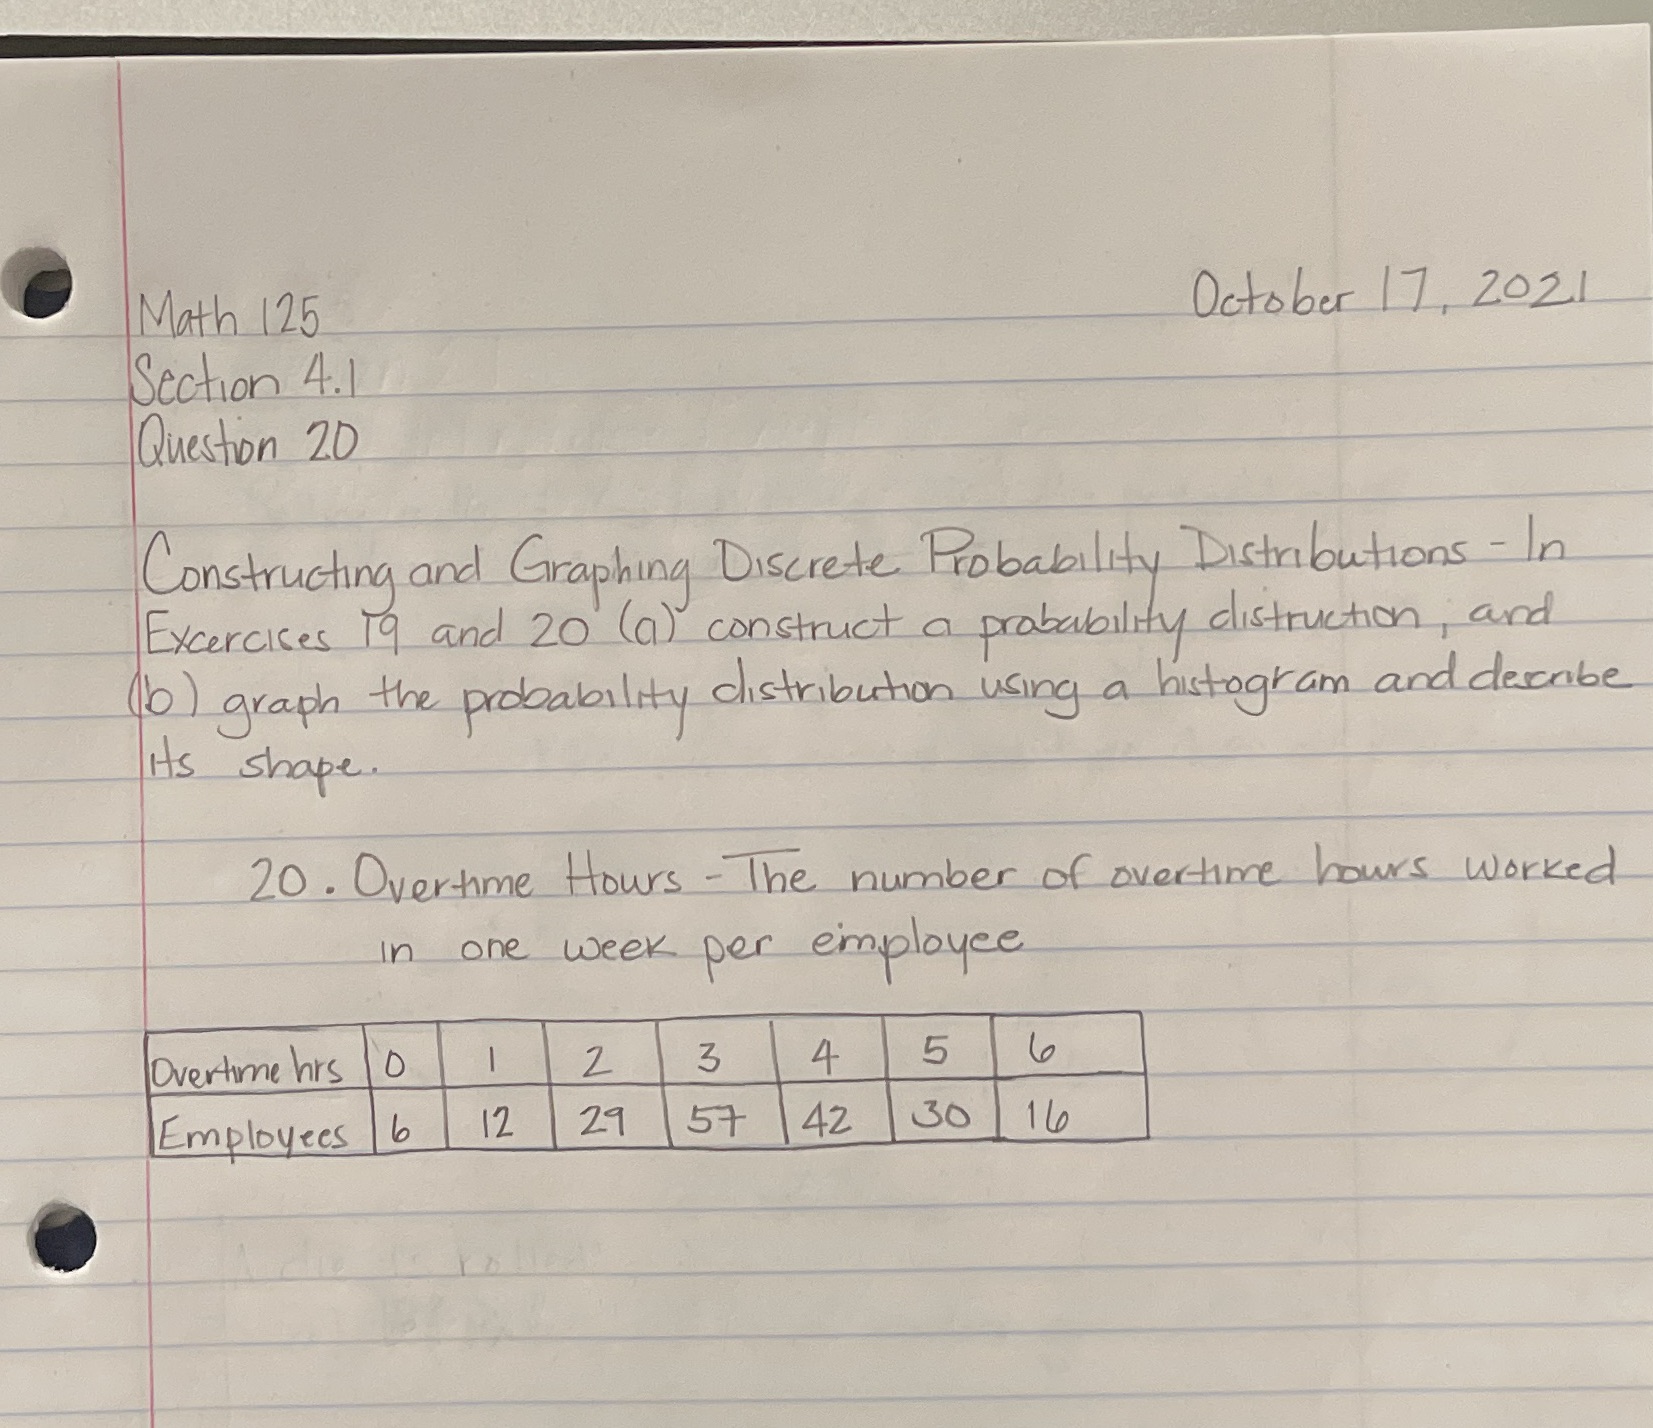 Math 125
October 17, 2021
Section 4.1
Question 20
Constructing and Graphing Discrete Probability Distributions - In
Excercises 19 and 20 (a) construct a probability distruction, and
(b) graph the probability distribution using a histogram and describe
its shape.
20. Overtime Hours - The number of overtime hours worked
in one week per employee
Overtime hrs 0 1 2 3 4 5 6
Employees 6 12 29 57 42 30 16